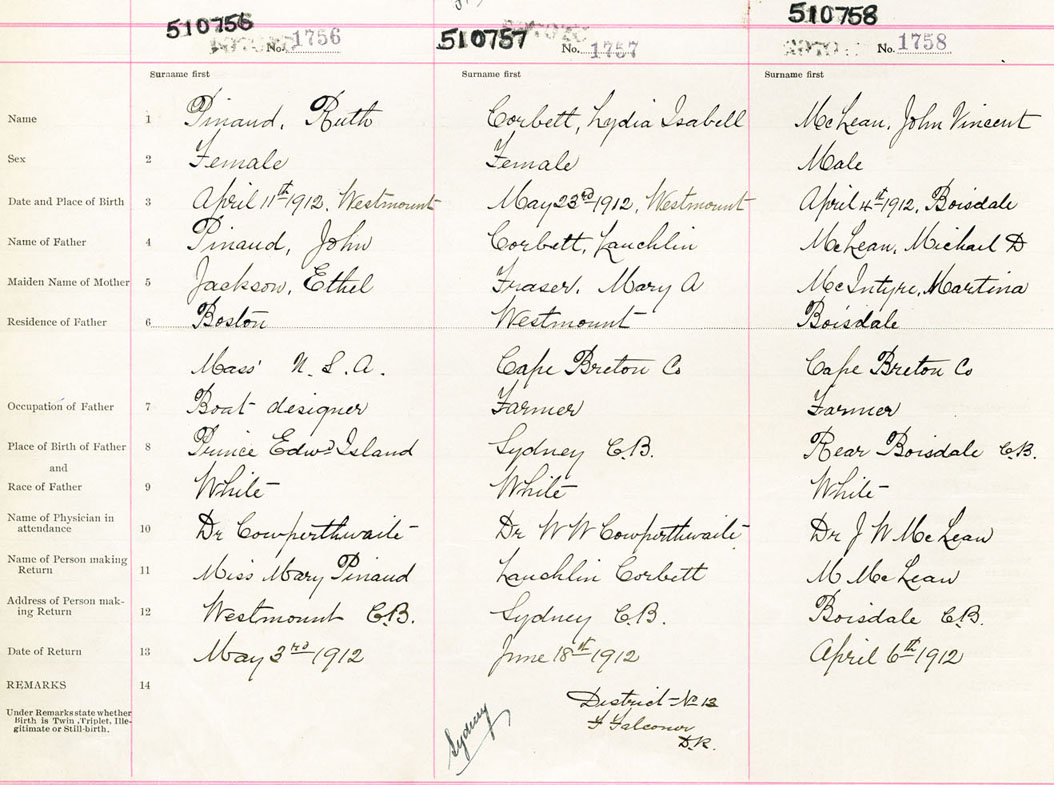 510756 510757 510758
No. 1756 No. 1757 No. 1758
Surname first Surname first Surname first
Name 1 Pinaud, Ruth Corbett, Lydia Isabell McLean, John Vincent
Sex 2 Female Female Male
Date and Place of Birth 3 April 11th 1912, Westmount May 23rd 1912, Westmount April 4th 1912, Boisdale
Name of Father 4 Pinaud, John Corbett, Lauchlin McLean, Michael D
Maiden Name of Mother 5 Jackson, Ethel Fraser, Mary A McIntyre, Martina
Residence of Father 6 Boston Westmount Boisdale
Mass' U. S. A. Cape Breton Co Cape Breton Co
Occupation of Father 7 Boat designer Farmer Farmer
Place of Birth of Father 8 Prince Edwd Island Sydney C.B. Rear Boisdale C.B.
and
Race of Father 9 White White White
Name of Physician in
attendance 10 Dr Cowperthwaite Dr W W Cowperthwaite Dr J W McLean
Name of Person making
Return 11 Miss Mary Pinaud Lauchlin Corbett M McLean
Address of Person mak-
ing Return 12 Westmount C.B. Sydney C.B. Boisdale C.B.
Date of Return 13 May 3rd 1912 June 18th 1912 April 6th 1912
REMARKS 14
Under Remarks state whether
Birth is Twin, Triplet, Ille-
gitimate or Still-birth.
Sydney
District No 13
F Falconer
D.R.